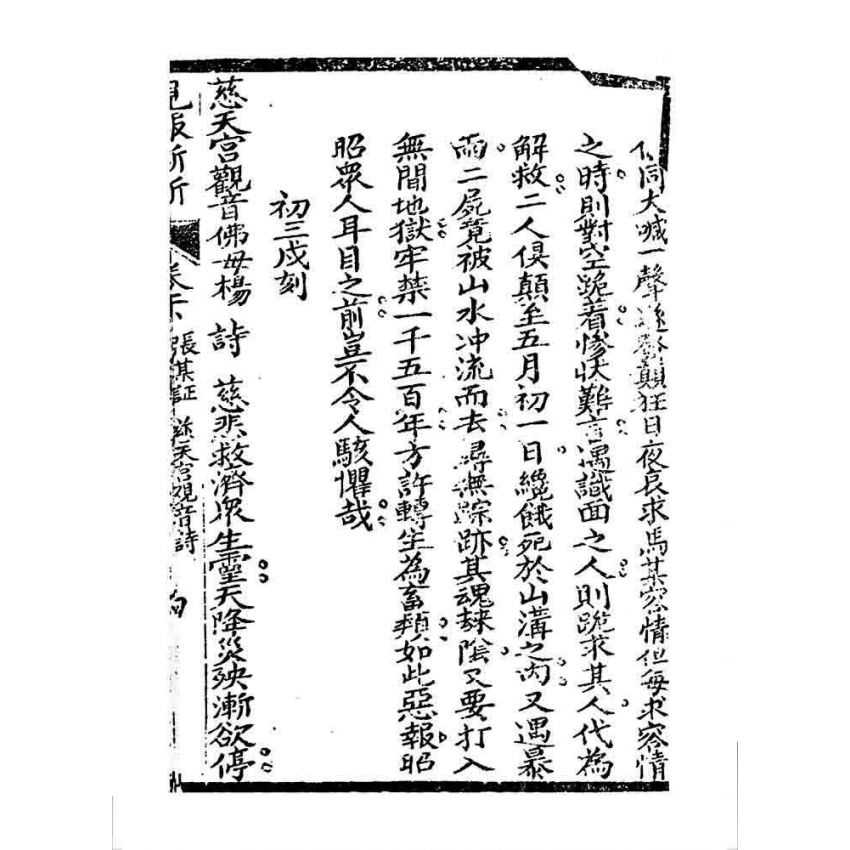 同大喊一聲遂各顛狂日夜哀求馬某容情但每求容情
之時則對空跪着慘狀難言遇識面之人則跪求其人代為
解救二人俱顛至五月初一日纔餓死於山溝之內又遇暴
雨二屍竟被山水冲流而去尋無踪跡其魂歸陰又要打入
無間地獄牢禁一千五百年方許轉生為畜類如此惡報昭
昭眾人耳目之前豈不令人駭懼哉
初三戌刻
慈天宮觀音佛母楊 詩 慈悲救濟眾生靈天降災殃漸欲停
張某証 慈天宮観音詩